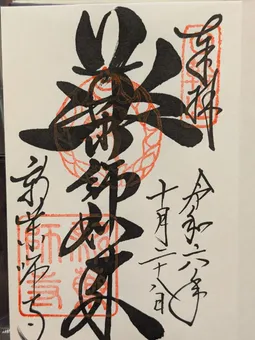 奉拝
令和六年
十月二十八日
薬師如来
新薬師寺